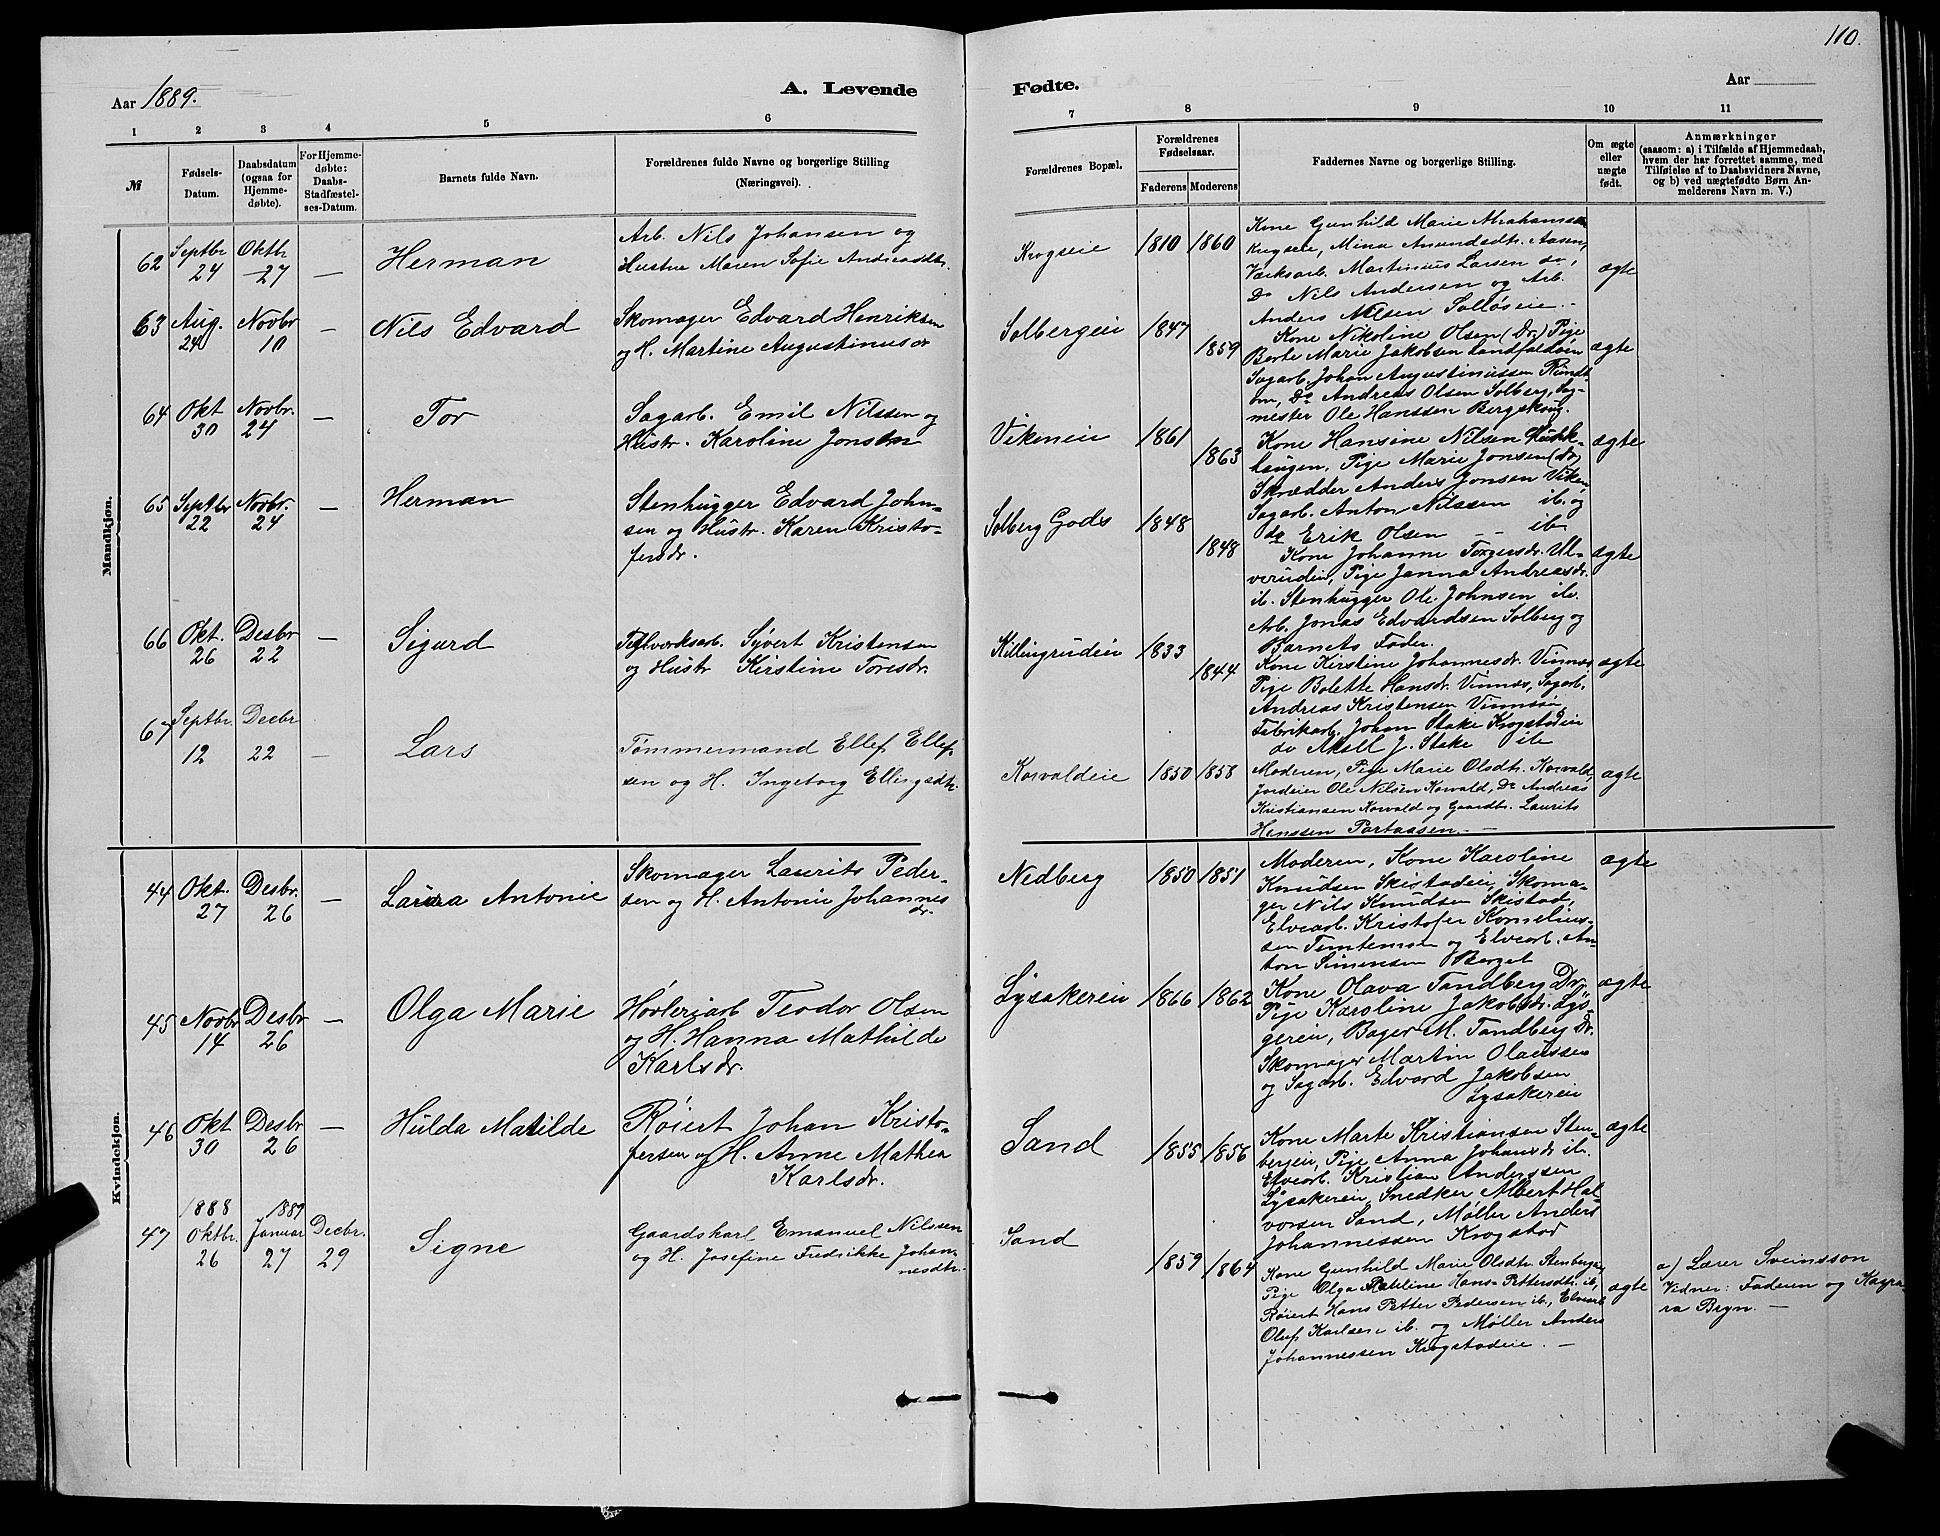 110.
Aar 1889.
A. Levende
Fødte.
Aar
1 2 3 4 5 6
7 8 9 10 11
№
Fødsels-
Datum.
Daabsdatum
(ogsaa for
Hjemme-
døbte).
For Hjemme-
døbte:
Daabs-
Stadfæstel-
ses-Datum.
Barnets fulde Navn.
Forældrenes fulde Navne og borgerlige Stilling
(Næringsvei).
Forældrenes Bopæl.
Forældrenes
Fødselsaar.
Faderens Moderens
Faddernes Navne og borgerlige Stilling.
Om ægte
eller
uægte
født.
Anmærkninger
(saasom: a) i Tilfælde af Hjemmedaab,
hvem der har forrettet samme, med
Tilføielse af to Daabsvidners Navne,
og b) ved uægtefødte Børn An-
melderens Navn m. V.)
Mandkjøn.
62 Septbr 24 Oktbr 27 — Herman
Arb. Nils Johansen og
Hustru Maren Sofie Andreasdtr.
Krogseie 1810 1860
Kone Gunhild Marie Abrahamsen
Krogseie, Mina Amundsdtr. Aasen,
Værksarb. Martinius Larsen do,
Do Nils Andersen og Arb.
Anders Nilsen Solløseie. -
ægte
63 Aug. 24 Novbr 10 — Nils Edvard
Skomager Edvard Henriksen
og H. Martine Augustinusdr
Solbergeie 1847 1859
Kone Nikoline Olsen (Dr.) Pige
Berte Marie Jakobsen Landfaldøen
Sagarb. Johan Augustinussen Rundt-
om, Do Andreas Olsen Solberg, Sag-
mester Ole Hanssen Bergskoug.
ægte
64 Okt 30 Novbr. 24 — Tor
Sagarb. Emil Nilssen og
Hustr. Karoline Jonsen
Vikeneie 1861 1863
Kone Hansine Nilsen
haugen, Pige Marie Jonsen (Dr)
Skrædder Anders Jonsen Viken
Sagarb. Anton Nilssen ib. og
do Erik Olsen — ib
ægte
65 Septbr 22 Novbr. 24 — Herman
Stenhugger Edvard John-
sen og Hustr. Karen Kristo-
fersdr.
Solberg Gods 1848 1848
Kone Johanne Torgersdr. Ul-
verudeie, Pige Janna Andreasdr.
ib. Stenhugger Ole Johnsen ib.
Arb. Jonas Edvardsen Solberg og
Barnets Fader.
ægte
66 Okt. 26 Desbr 22 — Sigurd
Teglverksarb. Syvert Kristensen
og Hustr Kirstine Toresdr.
Killingrudeie 1833 1844
Kone Kirstine Johannesdr. Vinnæs
Pige Bolette Hansdr. Vinnæs, Sagarb.
Andreas Kristensen
Fabrikarb. Johan Stake Krogstadeie
do Aksel J. Stake ib
ægte
67 Septbr. 12 Decbr 22 — Lars
Tømmermand Ellef Ellef-
sen og H. Ingeborg Ellingsdtr.
Korvaldeie 1850 1858
Moderen, Pige Marie Olsdtr. Korvald,
Jordeier Ole Nilsen Korvald, Do Andreas
Kristiansen Korvald og Gaardbr. Laurits
Hanssen Portaasen. —
ægte
Kvindekjøn.
44 Okt. 27 Desbr. 26 — Laura Antonie
Skomager Laurits Peder-
sen og H. Antonie Johannes
dr.
Nedberg 1850 1851
Moderen, Kone Karoline
Knudsen Skistadeie, Skoma-
ger Nils Knudsen Skistad,
Elvearb. Kristofer Kornelius-
sen Tomtemoen og Elvearb. An-
ton Simensen Berget
ægte
45 Novbr 14 Desbr 26 — Olga Marie
Høvleriarb Teodor Olsen
og H. Hanna Mathilde
Karlsdr.
Lysakereie 1866 1862
Kone Olava Tandberg Dr.,
Pige Karoline Jakobsdr. Lys-
gereie, Bager M. Tandberg Dr.
Skomager Martin Olaussen
og Sagarb. Edvard Jakobsen
Lysakereie
ægte
46 Okt 30 Desbr 26 — Hulda Matilde
Røiert Johan Kristo-
fersen og H. Anne Mathea
Karlsdr.
Sand 1855 1856
Kone Marte Kristiansen Sten-
bergeie, Pige Anna Johansdr ib.
Elvearb. Kristian Anderssen
Lysakereie, Snedker Albert Hal-
vorsen Sand, Møller Anders
Johannessen Krogstad
ægte
47 1888 Oktbr. 26 1889 Januar 27 Decbr. 29 Signe
Gaardskarl Emanuel Nilssen
og H. Josefine Fredrikke Johan-
nesdtr.
Sand 1859 1864
Kone Gunhild Marie Olsdtr Stenberge,
Pige Olga Pauline Hans-Pettersdtr. ib,
Røiert Hans Petter Pedersen ib., Elvearb.
Oluf Karlsen ib. og Møller Anders
Johannessen Krogstadeie. —
ægte
a) Lærer Sveinsson
Vidner: Faderen og
Bryn. —